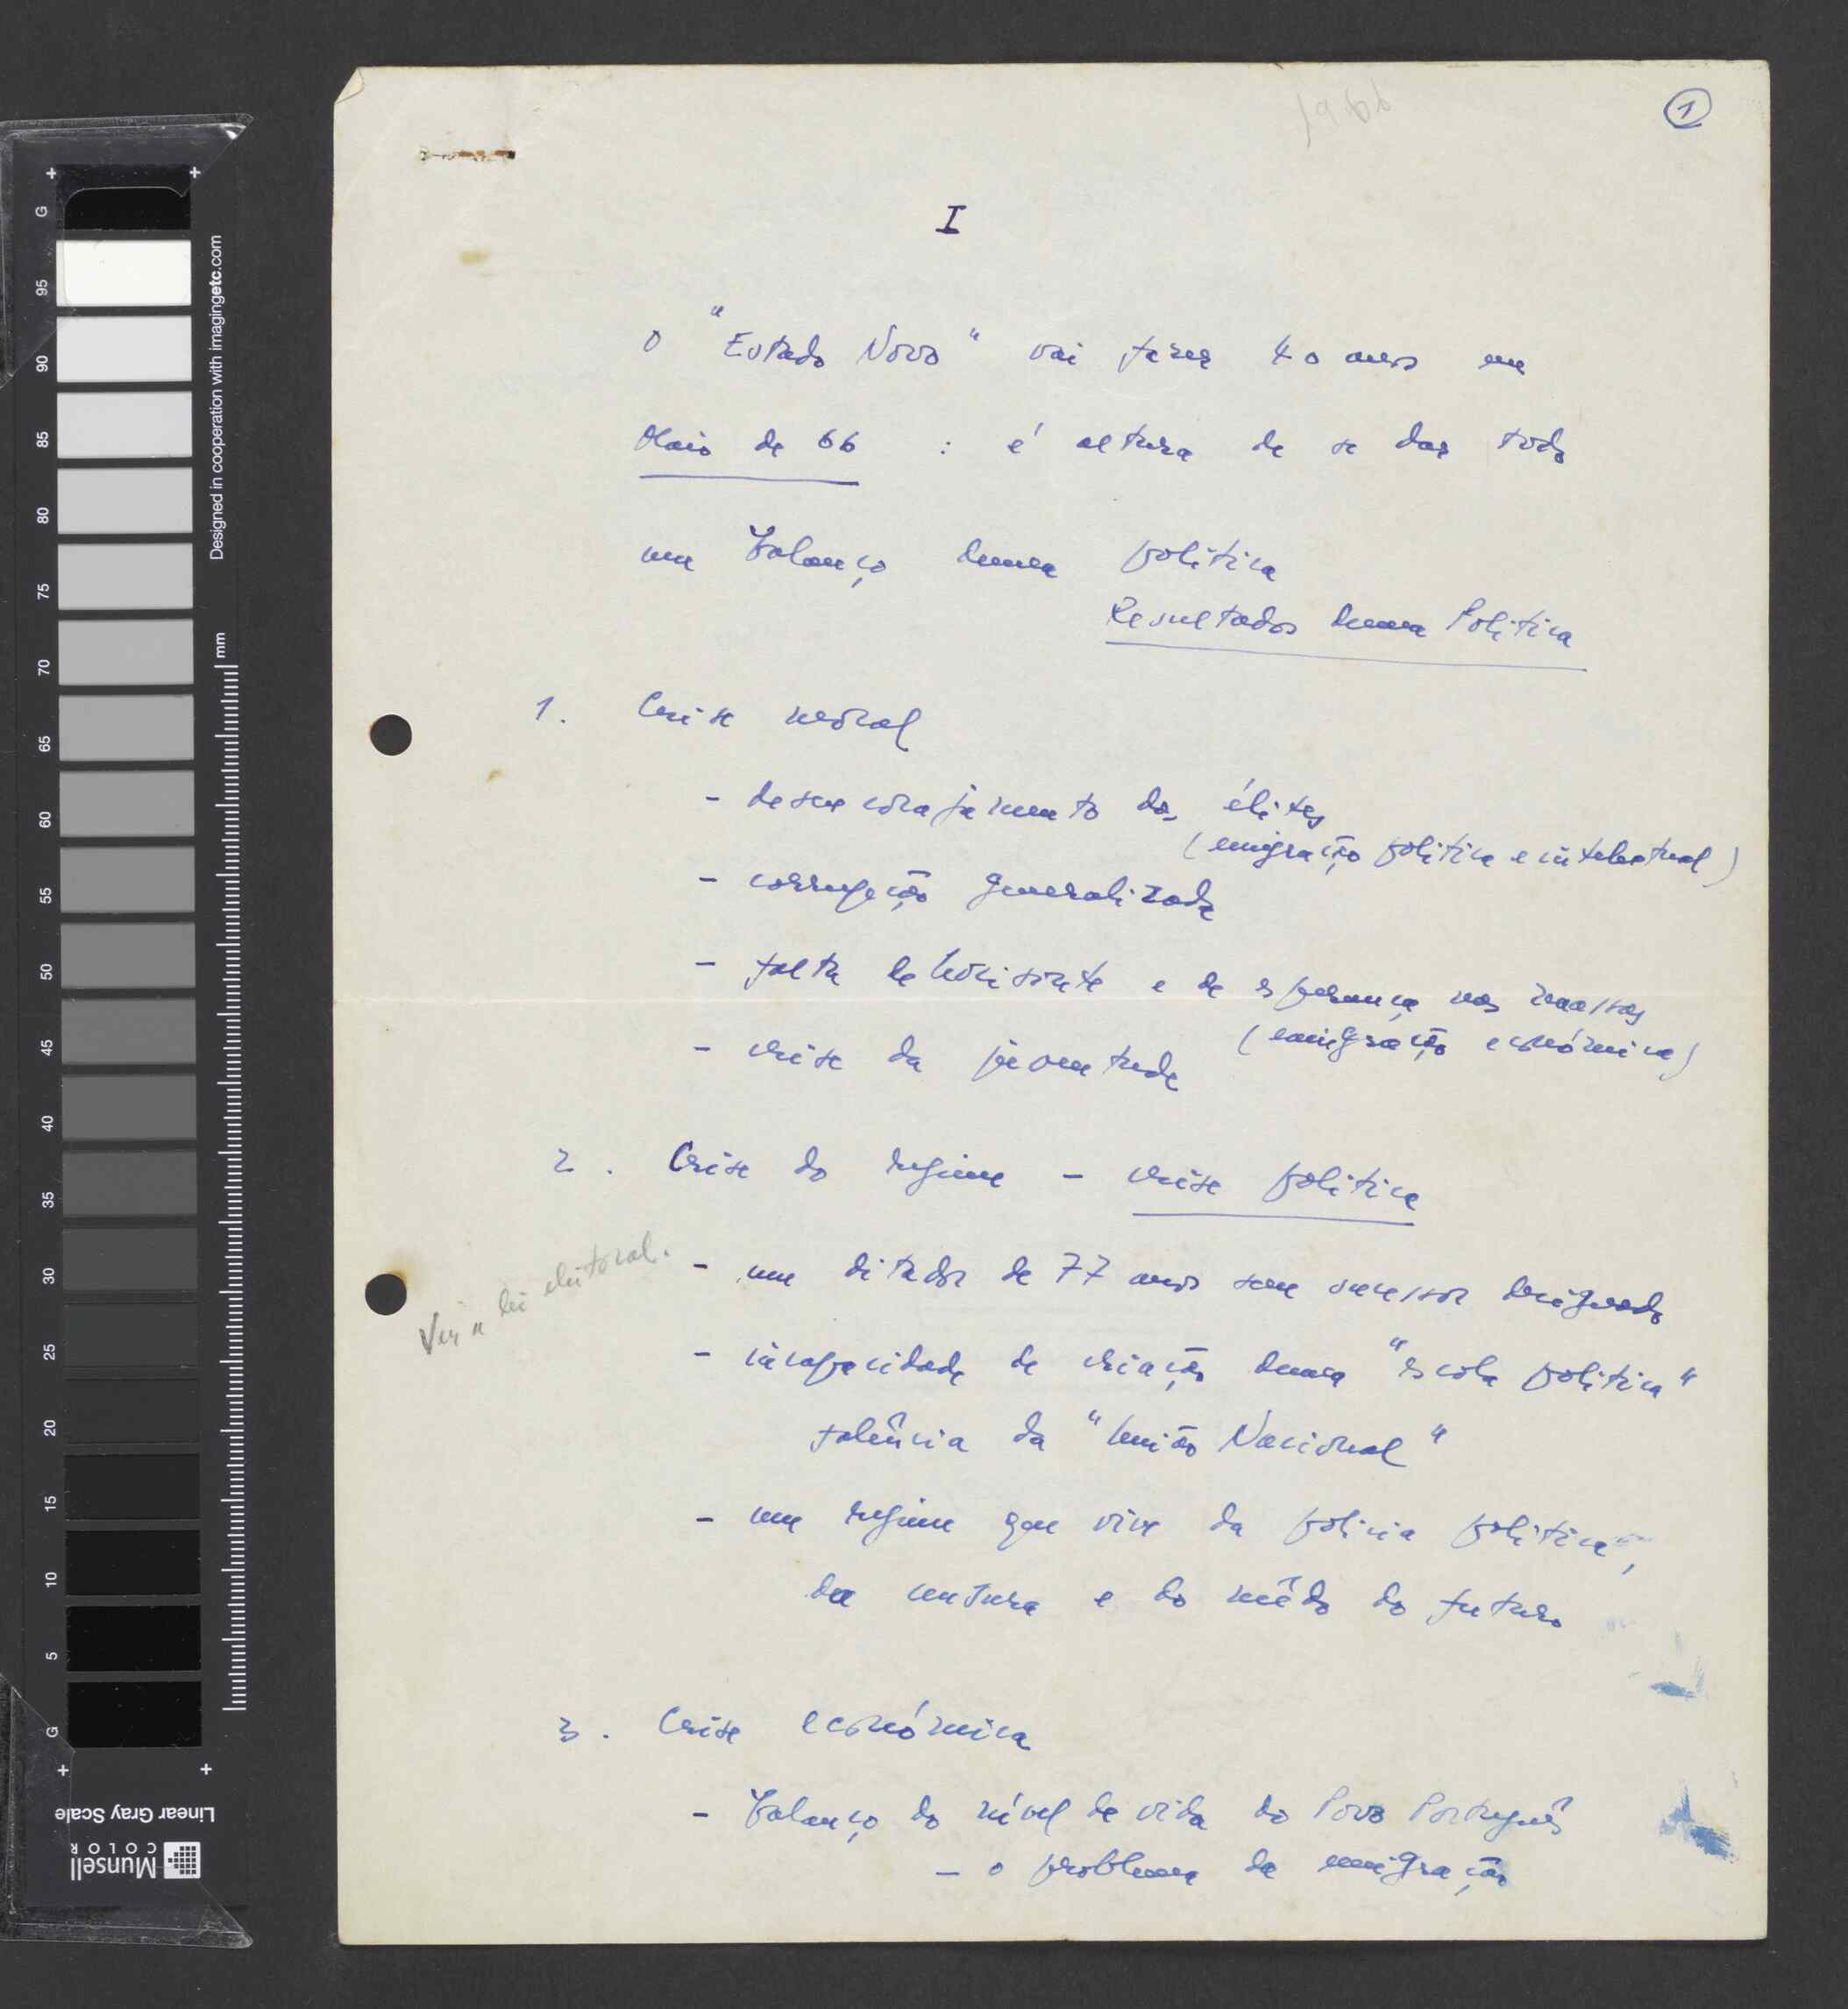 1966
1
I
O "Estado Novo" vai fazer 40 anos em
Maio de 66 : é altura de se dar todo
um balanço duma política
Resultados duma Política
1. Crise moral
- desencorajamento das élites
(emigração política e intelectual)
- corrupção generalizada
- falta de horisonte e de esperança nas massas
(emigração económica)
- crise da juventude
2. Crise do regime - crise política
Ver a lei eleitoral.
- um ditador de 77 anos sem sucessor designado
- incapacidade de criação duma "escola política"
falência da "União Nacional"
- um regime que vive da polícia política,
da censura e do mêdo do futuro
3. Crise económica
- balanço do nível de vida do Povo Português
- o problema da emigração
Designed in cooperation with imagingetc.com
mm
mm
G
95
90
85
80
75
70
65
60
55
50
45
40
35
30
25
20
15
10
5
G
Linear Gray Scale
Munsell
COLOR